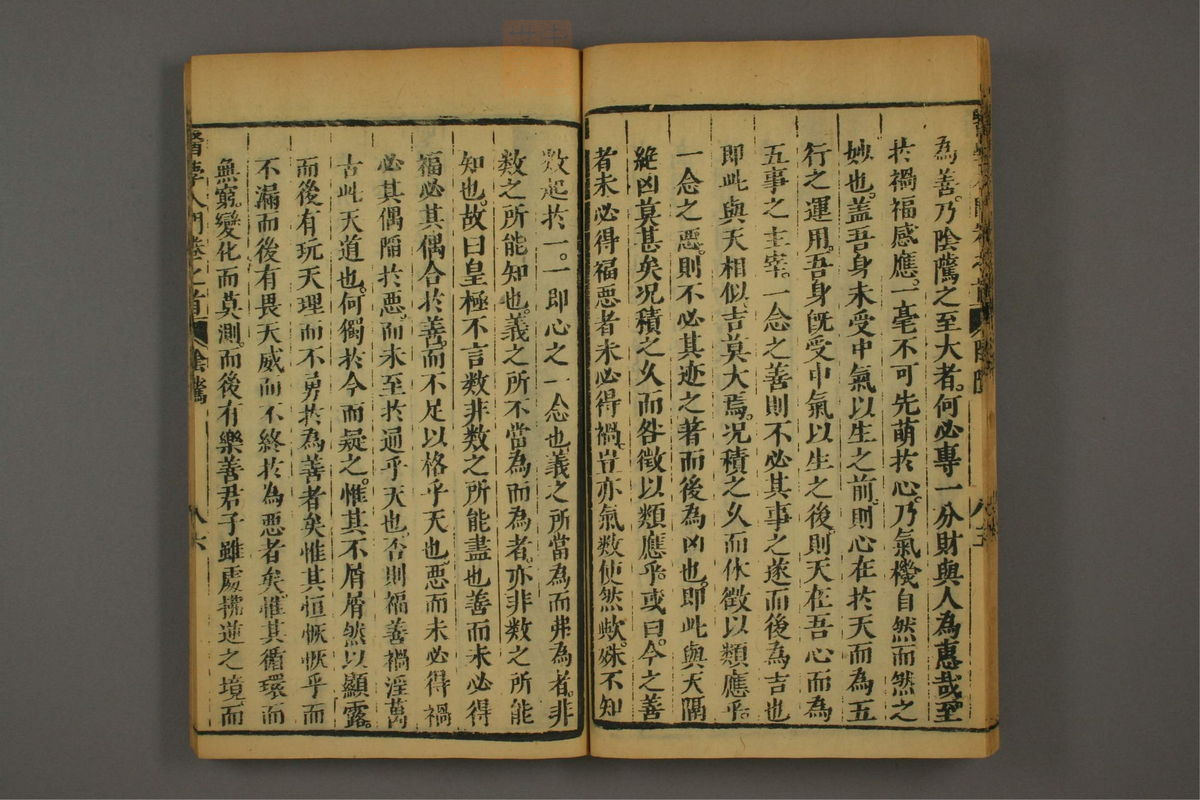 為善。乃陰騭之至大者。何必專一分財與人為惠哉。至
於禍福感應。一毫不可先萌於心。乃氣機自然而然之
妙也。蓋吾身未受中氣以生之前。則心在於天而為五
行之運用。吾身旣受中氣以生之後。則天在吾心而為
五事之主宰。一念之善則不必其事之遂而後為吉也
即此與天相似。吉莫大焉。况積之久而休徵以類應乎。
一念之惡。則不必其迹之著而後為凶也。即此與天隔
絶凶莫甚矣况積之久而咎徵以類應乎。或曰。今之善
者未必得福惡者未必得禍。豈亦氣數使然歟。殊不知
數起於一。一即心之一念也義之所當為而弗為者。非
數之所能知也。義之所不當為而為者。亦非數之所能
知也。故曰皇極不言數非數之所能盡也善而未必得
福必其偶合於善。而不足以格乎天也。惡而未必得禍
必其偶陷於惡。而未至於通乎天也。否則福善禍淫萬
古此天道也。何獨於今而疑之。惟其不屑屑然以顯露。
而後有玩天理而不勇於為善者矣惟其恒恢恢乎而
不漏而後有畏天威而不終於為惡者矣。惟其循環而
無窮。變化而莫測。而後有樂善君子雖處拂逆之境而
醫學入門卷之首 陰騭 八六